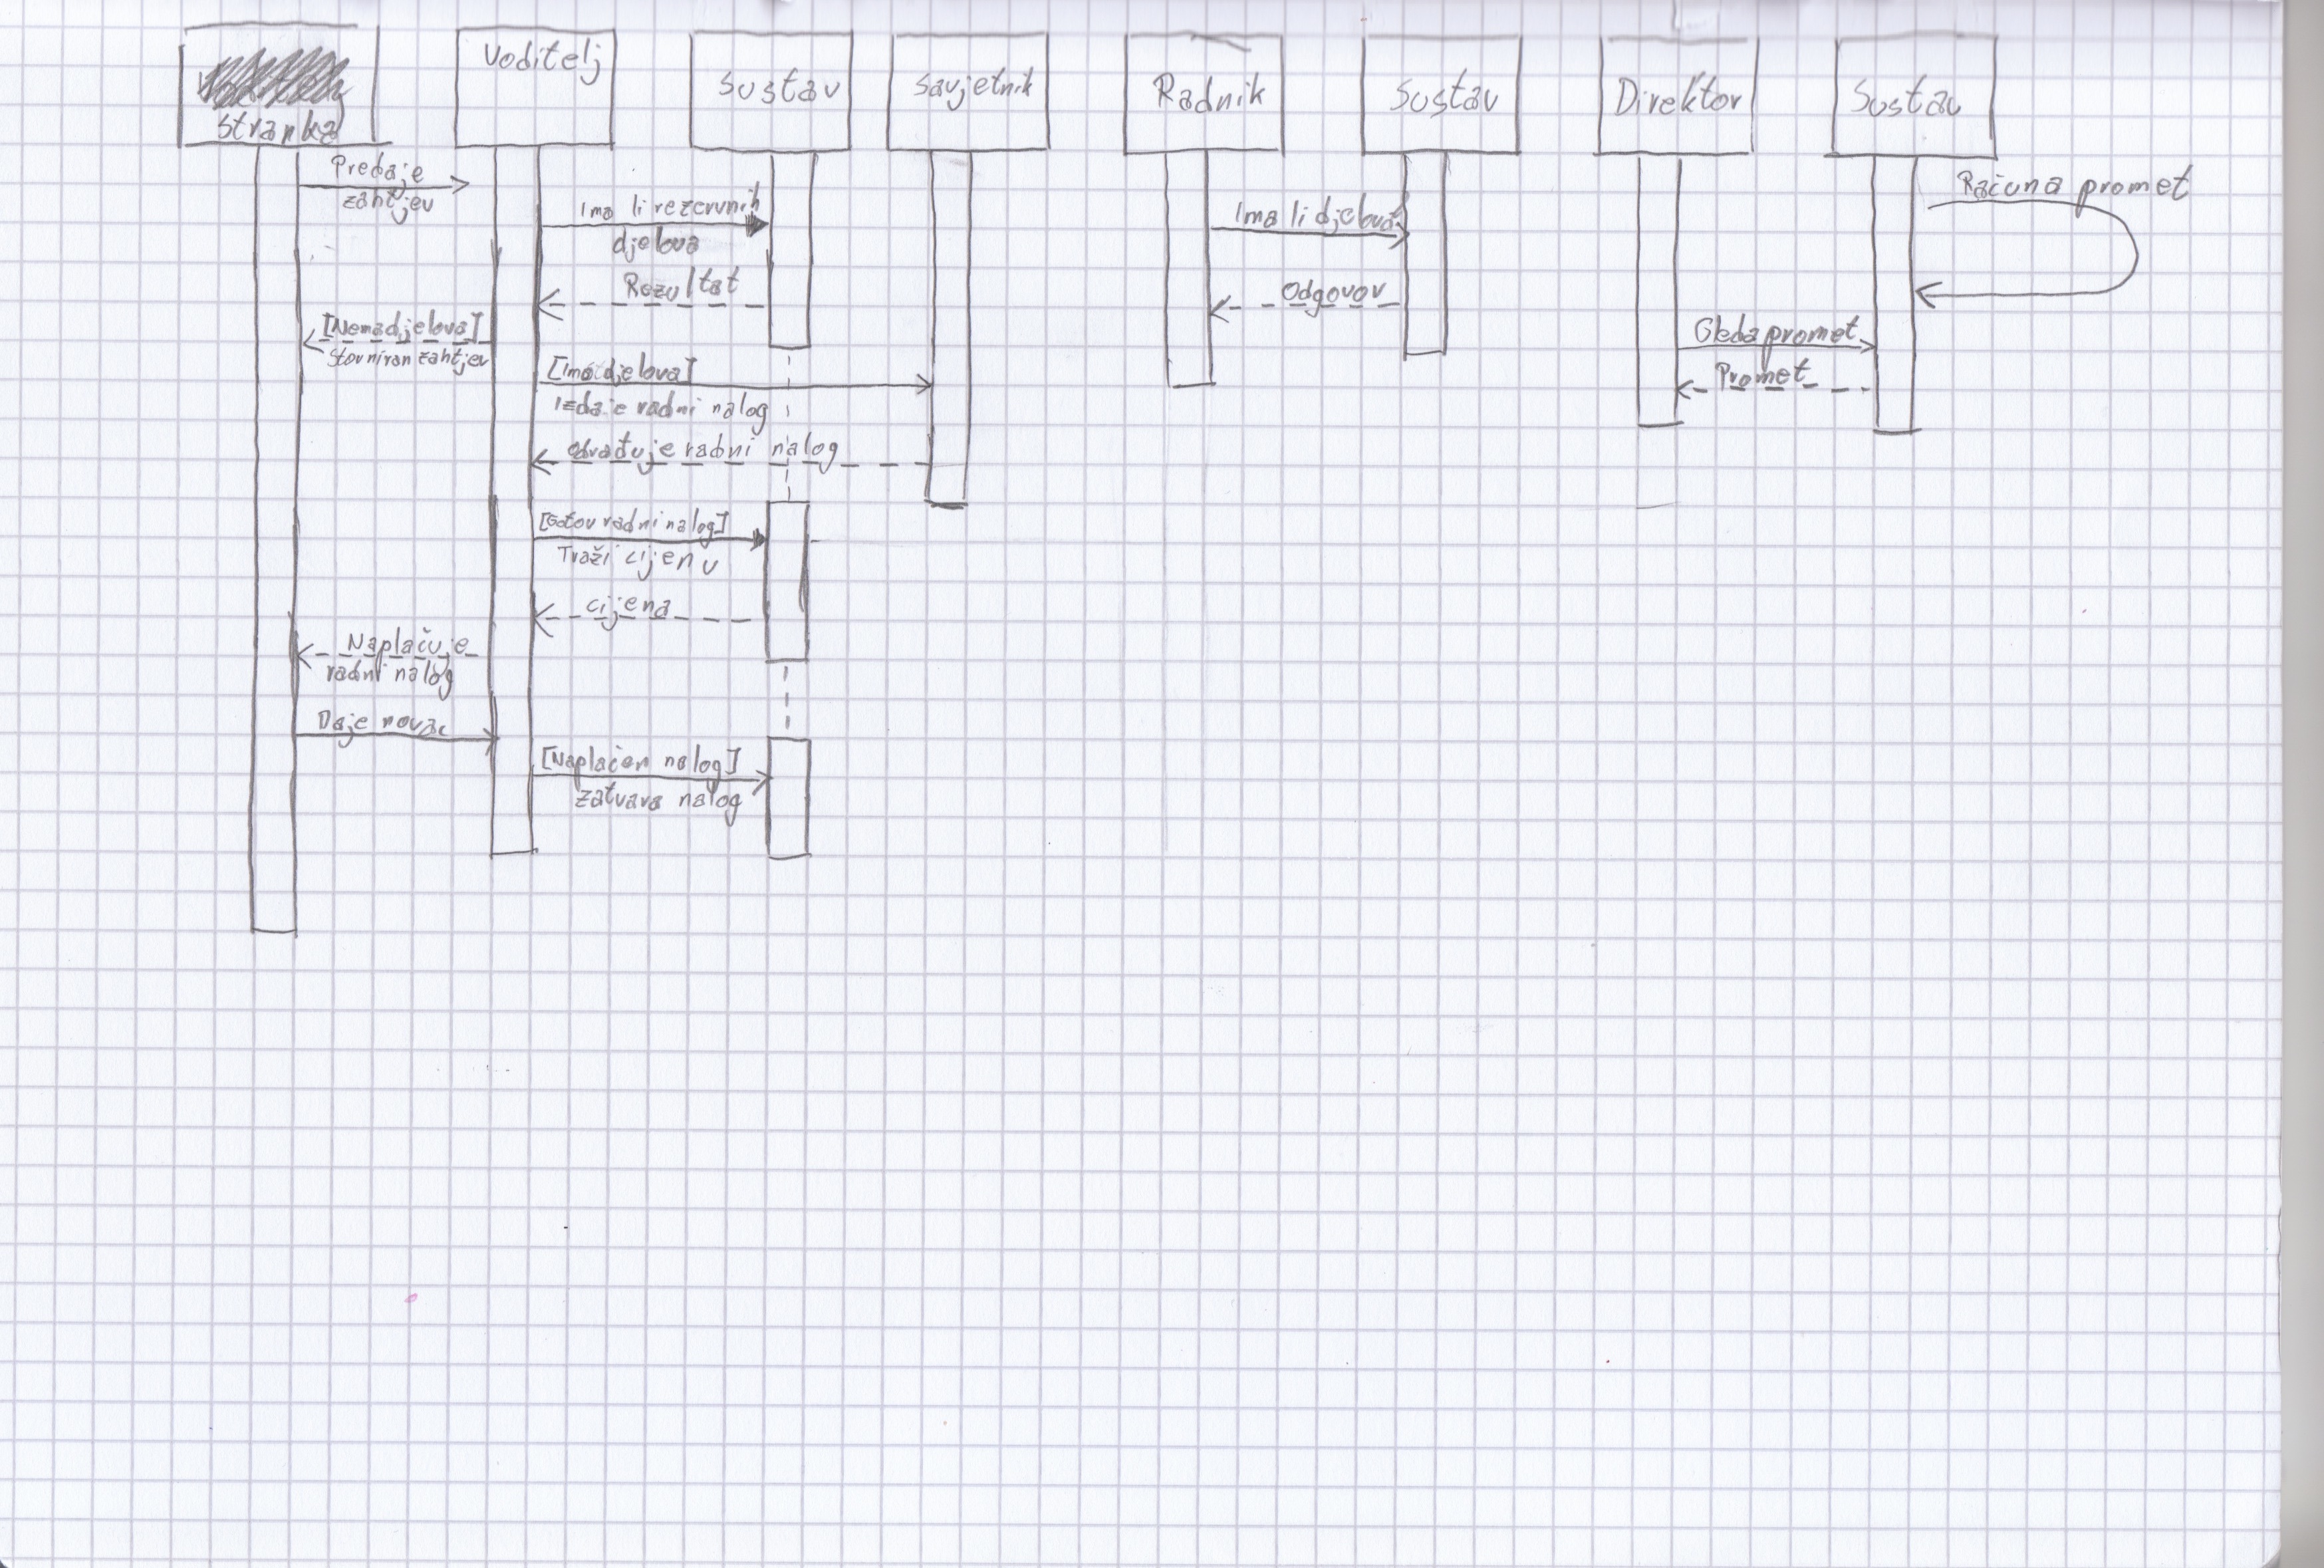 stranka
Voditelj
Sustav
Savjetnik
Radnik
Sustav
Direktor
Sustav
Predaje
zahtjev
Ima li rezervnih
djelova
Rezultat
[Nema djelova]
Storniran zahtjev
[Ima djelova]
Izdaje radni nalog
radni nalog
[Gotov radni nalog]
Traži cijenu
cijena
Naplačuje
radni nalog
Daje novac
[Naplačen nalog]
zatvara nalog
Ima li djelova
Odgovor
Računa promet
Gleda promet
Promet